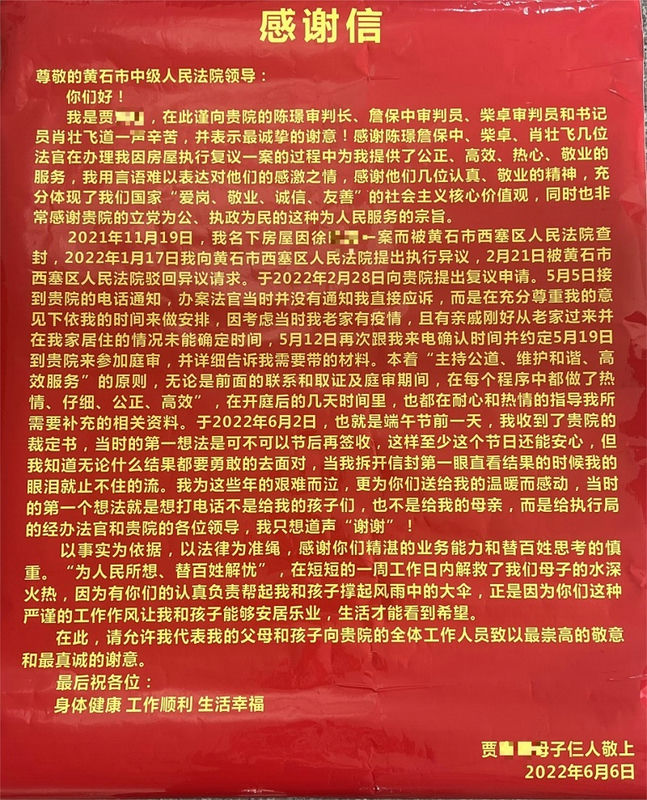 感谢信
尊敬的黄石市中级人民法院领导：
你们好！
我是贾，在此谨向贵院的陈璟审判长、詹保中审判员、柴卓审判员和书记
员肖壮飞道一声辛苦，并表示最诚挚的谢意！感谢陈璟詹保中、柴卓、肖壮飞几位
法官在办理我因房屋执行复议一案的过程中为我提供了公正、高效、热心、敬业的
服务，我用言语难以表达对他们的感激之情，感谢他们几位认真、敬业的精神，充
分体现了我们国家“爱岗、敬业、诚信、友善”的社会主义核心价值观，同时也非
常感谢贵院的立党为公、执政为民的这种为人民服务的宗旨。
2021年11月19日，我名下房屋因徐一案而被黄石市西塞区人民法院查
封，2022年1月17日我向黄石市西塞区人民法院提出执行异议，2月21日被黄石市
西塞区人民法院驳回异议请求。于2022年2月28日向贵院提出复议申请。5月5日接
到贵院的电话通知，办案法官当时并没有通知我直接应诉，而是在充分尊重我的意
见下依我的时间来做安排，因考虑当时我老家有疫情，且有亲戚刚好从老家过来并
在我家居住的情况未能确定时间，5月12日再次跟我来电确认时间并约定5月19日
到贵院来参加庭审，并详细告诉我需要带的材料。本着“主持公道、维护和谐、高
效服务”的原则，无论是前面的联系和取证及庭审期间，在每个程序中都做了热
情、仔细、公正、高效”，在开庭后的几天时间里，也都在耐心和热情的指导我所
需要补充的相关资料。于2022年6月2日，也就是端午节前一天，我收到了贵院的
裁定书，当时的第一想法是可不可以节后再签收，这样至少这个节日还能安心，但
我知道无论什么结果都要勇敢的去面对，当我拆开信封第一眼直看结果的时候我的
眼泪就止不住的流。我为这些年的艰难而泣，更为你们送给我的温暖而感动，当时
的第一个想法就是想打电话不是给我的孩子们，也不是给我的母亲，而是给执行局
的经办法官和贵院的各位领导，我只想道声“谢谢”！
以事实为依据，以法律为准绳，感谢你们精湛的业务能力和替百姓思考的慎
重。“为人民所想、替百姓解忧”，在短短的一周工作日内解救了我们母子的水深
火热，因为有你们的认真负责帮起我和孩子撑起风雨中的大伞，正是因为你们这种
严谨的工作作风让我和孩子能够安居乐业，生活才能看到希望。
在此，请允许我代表我的父母和孩子向贵院的全体工作人员致以最崇高的敬意
和最真诚的谢意。
最后祝各位：
身体健康 工作顺利 生活幸福
贾母子仨人敬上
2022年6月6日